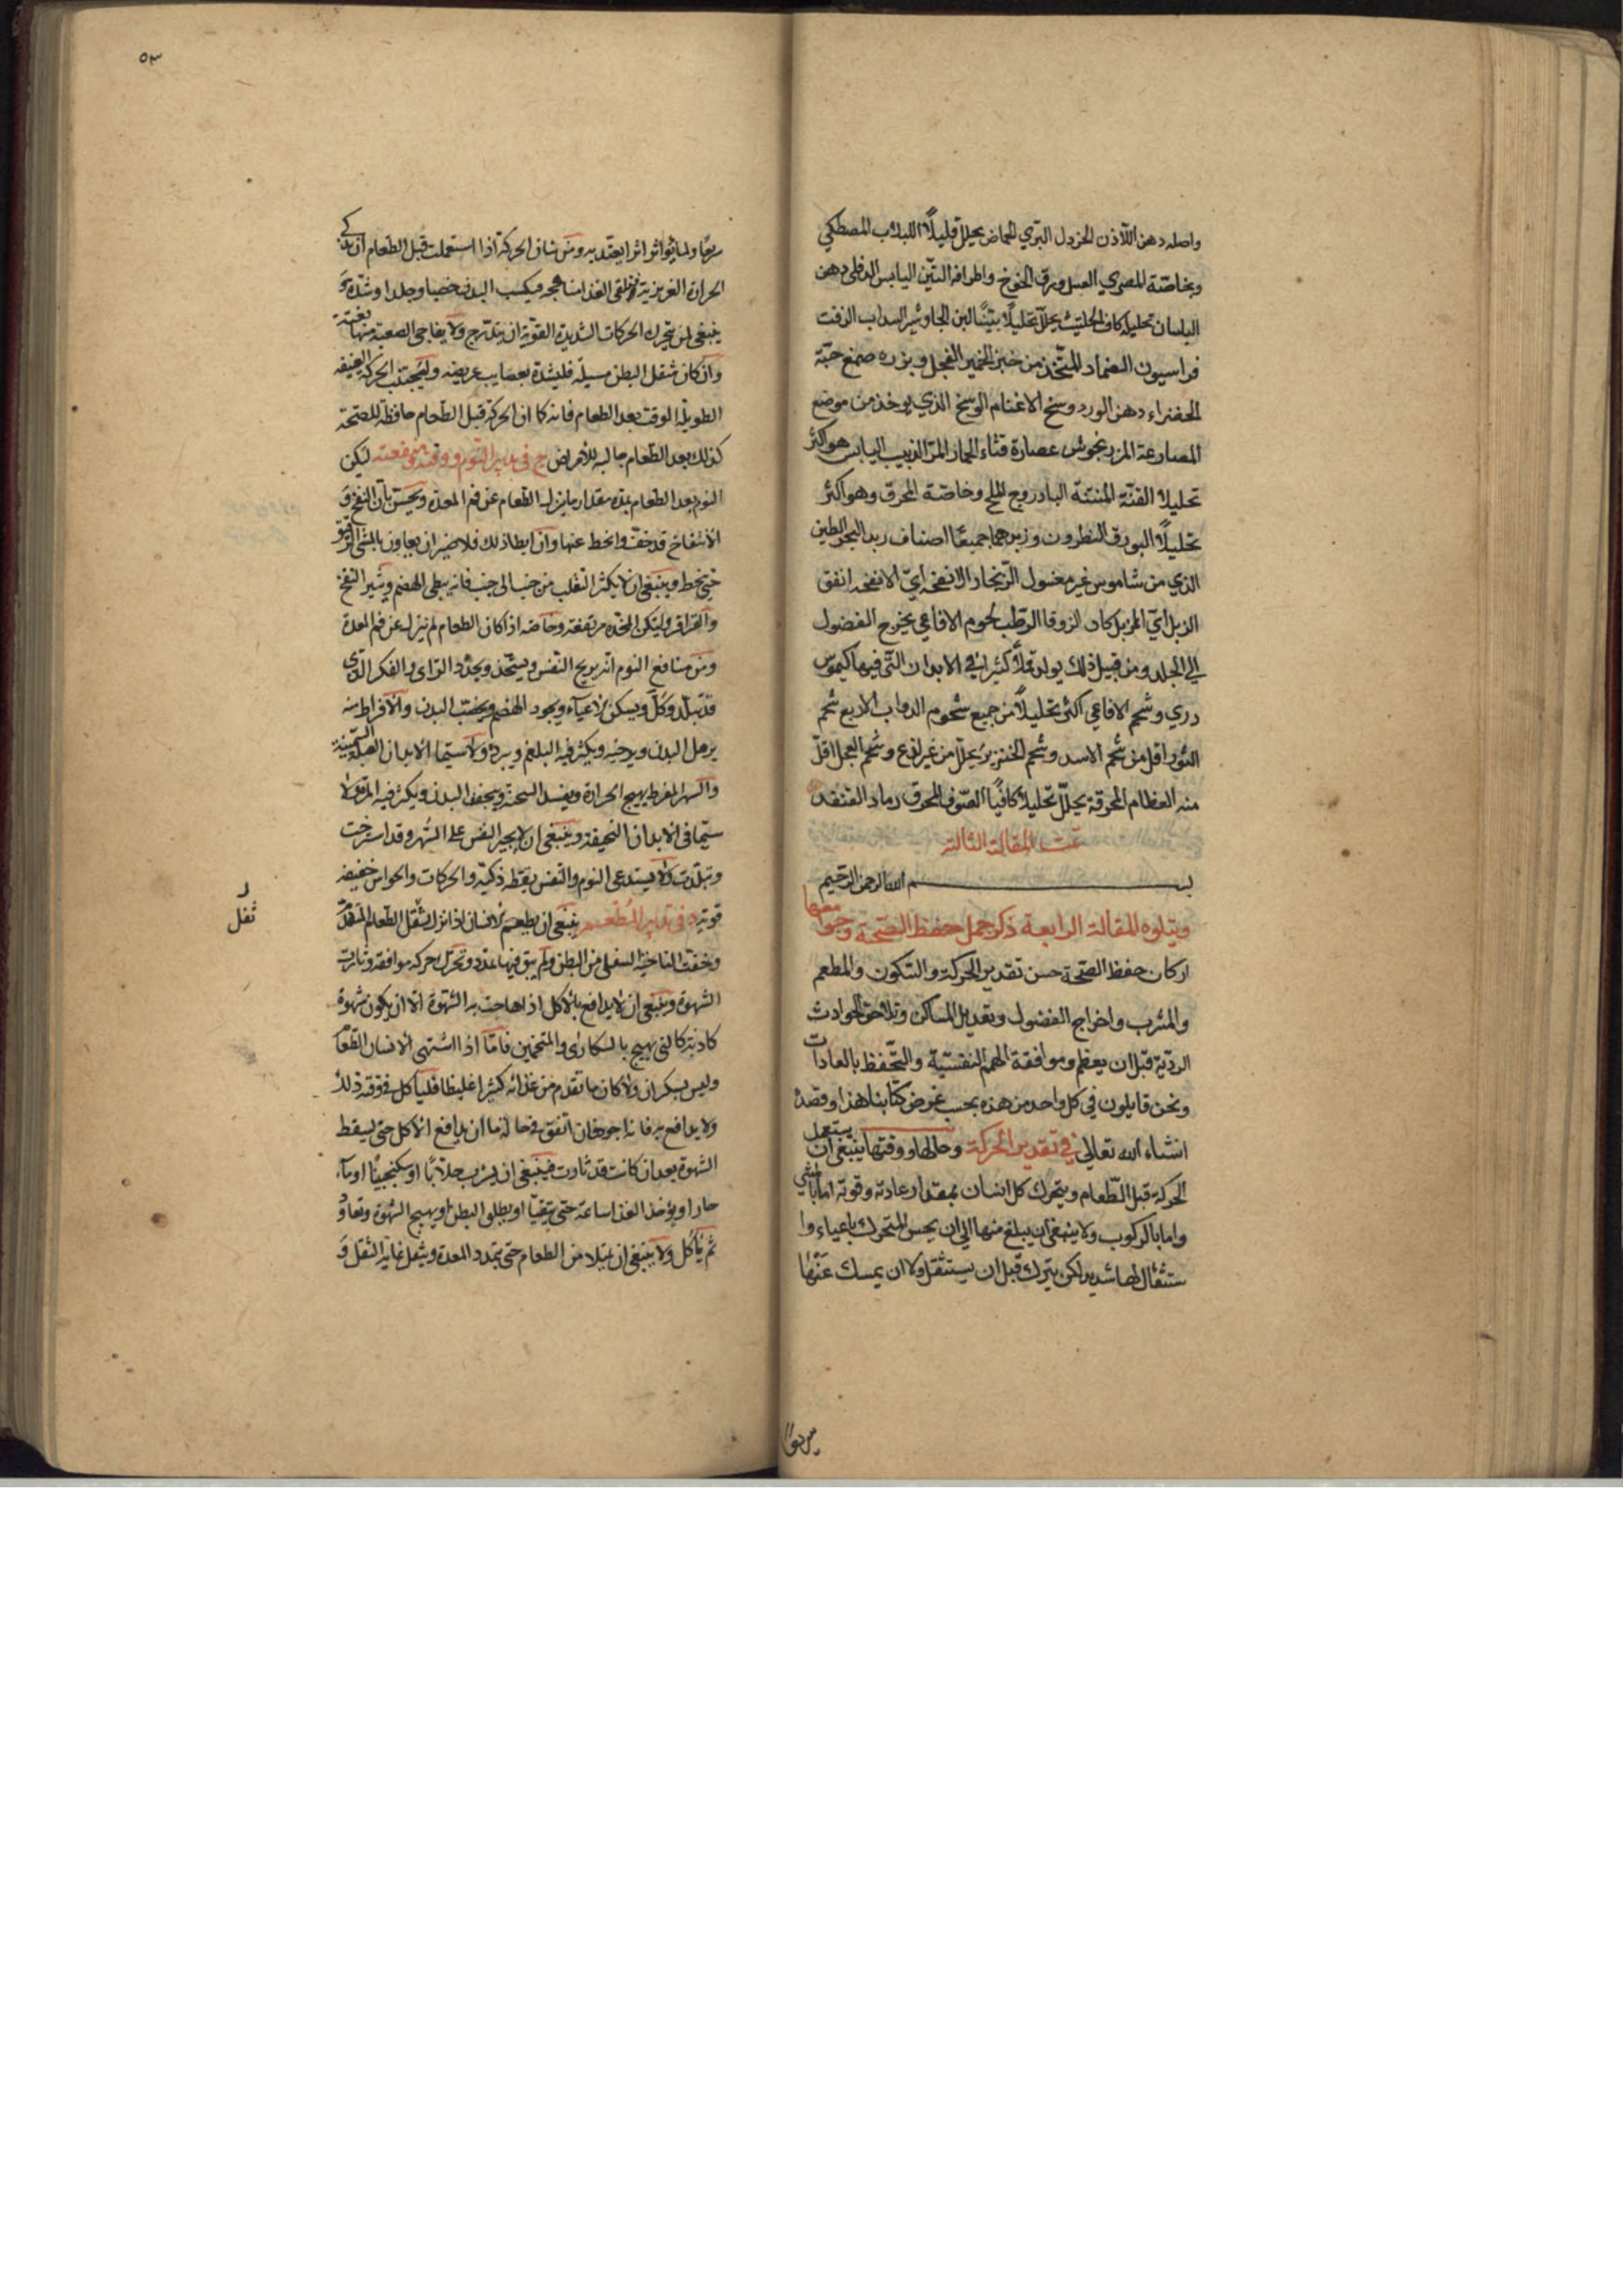 واصله دهن اللآذن الخردل البرّي الحماض يحلل قليلاً اللبلاب المصطكي
وبخاصّة المصري العسل ورق الخوخ واطرافه التّين اليابس الدفلي دهن
البلسان تحليله كاف الحلتيت يحلل تحليلاً بيّناً لبن الجاوشير السداب الزفت
فراسيون الضماد المتّخذ من خبز الخمير الفجل وبزره صمغ حبّة
الخضراء دهن الورد وسخ الاغنام الوسخ الذي يوخذ من موضع
المصارعة المرزنجوش عصارة قثاء الحمار المرّ الزبيب اليابس هو اكثر
تحليلا القنّة المنتنة البادروج الملح وخاصّة المحرق وهو اكثر
تحليلاً البورق النطرون وزبدهما جميعًا اصناف زبد البحر الطين
الذي من شاموس غير مغسول الزنجار الانفخه ايّ الانفخه اتفق
الزبل ايّ الزبل كان الزوفا الرّطب لحوم الافاعي يخرج الفضول
الي الجلد ومن قبيل ذلك يولد قملاً كثيرا في الابدان التّي فيها كيموس
ردي وشحم الافاعي اكثر تحليلاً من جميع شحوم الدواب الاربع شحم
الثور اقل من شحم الاسد وشحم الخنزير يحلّل من غير لذع وشحم العجل اقلّ
منه العظام المحرقة يحلّل تحليلا كافيًا الصّوف المحرق رماد القنفد
تمت المقالة الثالثة
بسم الله الرحمن الرحيم
ويتلوه المقالة الرابعة ذكر جمل حفظ الصّحة وجوامعها
اركان حفظ الصّحة حسن تقدير الحركة والسّكون والمطعم
والمشرب واخراج الفضول وتعديل المساكن وتلاحق الحوادث
الرديّة قبل ان يعظم وموافقة الهمم النفسيّة والتّحفظ بالعادات
ونحن قايلون في كل واحد من هذه بحسب غرض كتابنا هذا وقصده
انشاء الله تعالي في تقدير الحركة وحالها ووقتها ينبغي ان يستعمل
الحركة قبل الطّعام ويتحرك كل انسان بمقدار عادته وقوته اما بالمشي
واما بالركوب ولا ينبغي ان يبلغ منها الي ان يحس المتحرك باعياء وا
ستثقال لها شديد لكن يترك قبل ان يستثقل ولا ان يمسك عنها
سريعًا
٥٣
سريعًا ولما يؤاثر اثرا يعتد به ومن شان الحركة اذا استعملت قبل الطّعام ان يذكي
الحرارة الغريزية فتلقى الغذا منا هجه ويكسب البدن خصبا وجلدا وشدّة و
ينبغي لمن يتحرك الحركات الشديدة القويّة ان يتدرّج ولا يفاجي الصعبة منها بغتة
وان كان ثقل البطن مسيله فليشدّه بعصايب عريضه وليجتنب الحركة العنيفه
الطويلة الوقت بعد الطعام فانه كما ان الحركة قبل الطّعام حافظة للصّحة
كذلك بعد الطّعام جالبه للامراض ج في تدبير النّوم ووقته ومنفعته ليكن
النوم بعد الطعام بمدّة مقدار ما ينزل الطّعام عن فم المعدة ويحسّ بان النفخ و
الانتفاخ قد خفّ وانحط عنها وان ابطا ذلك فلا ضير ان يعاون بالمشي الرفيق
حتي ينحط وينبغي ان لا يكثر التقلب من جنب الى جنب فانه يبطي الهضم ويثير النفخ
والقراقر وليكن المخدّه مرتفعة وخاصّه اذا كان الطعام لم ينزل عن فم المعدة
ومن منافع النوم انه يريح النّفس ويشحّذ ويجدّد الرّاى والفكر الذّي
قد تبلّد وكلّ ويسكن الاعياء ويجود الهضم ويخصب البدن والافراط منه
يرهل البدن ويرخيه ويكثر فيه البلغم ويبرده ولا سيّما الابدان العبلة السّمينة
والسهر المفرط يهيج الحرارة ويفسد السحنة ويجفف البدن ويكثر فيه المرّة ولا
سيّما في الابدان النحيفة وينبغي ان لا يجبر النفس على السّهر وقد استرخت
وتبلّدت ولا يستدعى النوم والنّفس يقظه ذكيّة والحركات والحواس خفيفه
قويّة د في تدبير المطعم ينبغي ان يطعم الانسان اذا نزل ثقل الطّعام المتقدّم
وخفّت الناحية السفلى من البطن ولم يبق فيها تمدّد وتحرّك حركه موافقه وثارت
الشهوة وينبغي ان لا يدافع بالاكل اذا هاجت به الشّهوة الّا ان يكون شهوة
كاذبة كالتى يهيج بالسكارى والمتخمين فامّا اذا اشتهى الانسان الطّعام
وليس بسكران ولا كان ما تقدم من غذائه كثيرا غليظا فليأكل فى وقته ذلك
ولا يدافع به فانه اجود فان اتفق فى حالة ما ان يدافع الاكل حتي يسقط
الشهوة بعد ان كانت قد ثارت فينبغي ان يشرب جلابًا او سكنجبينًا او مآء
حارا ويؤخذ الغذا ساعة حتي يتقيّا او يطلو البطن او يهيج الشّهوة وتعاود
ثم يأكل ولا ينبغي ان يمتلا من الطعام حتي يتمدد المعدة ويثقل غاية الثقل و
ثفل